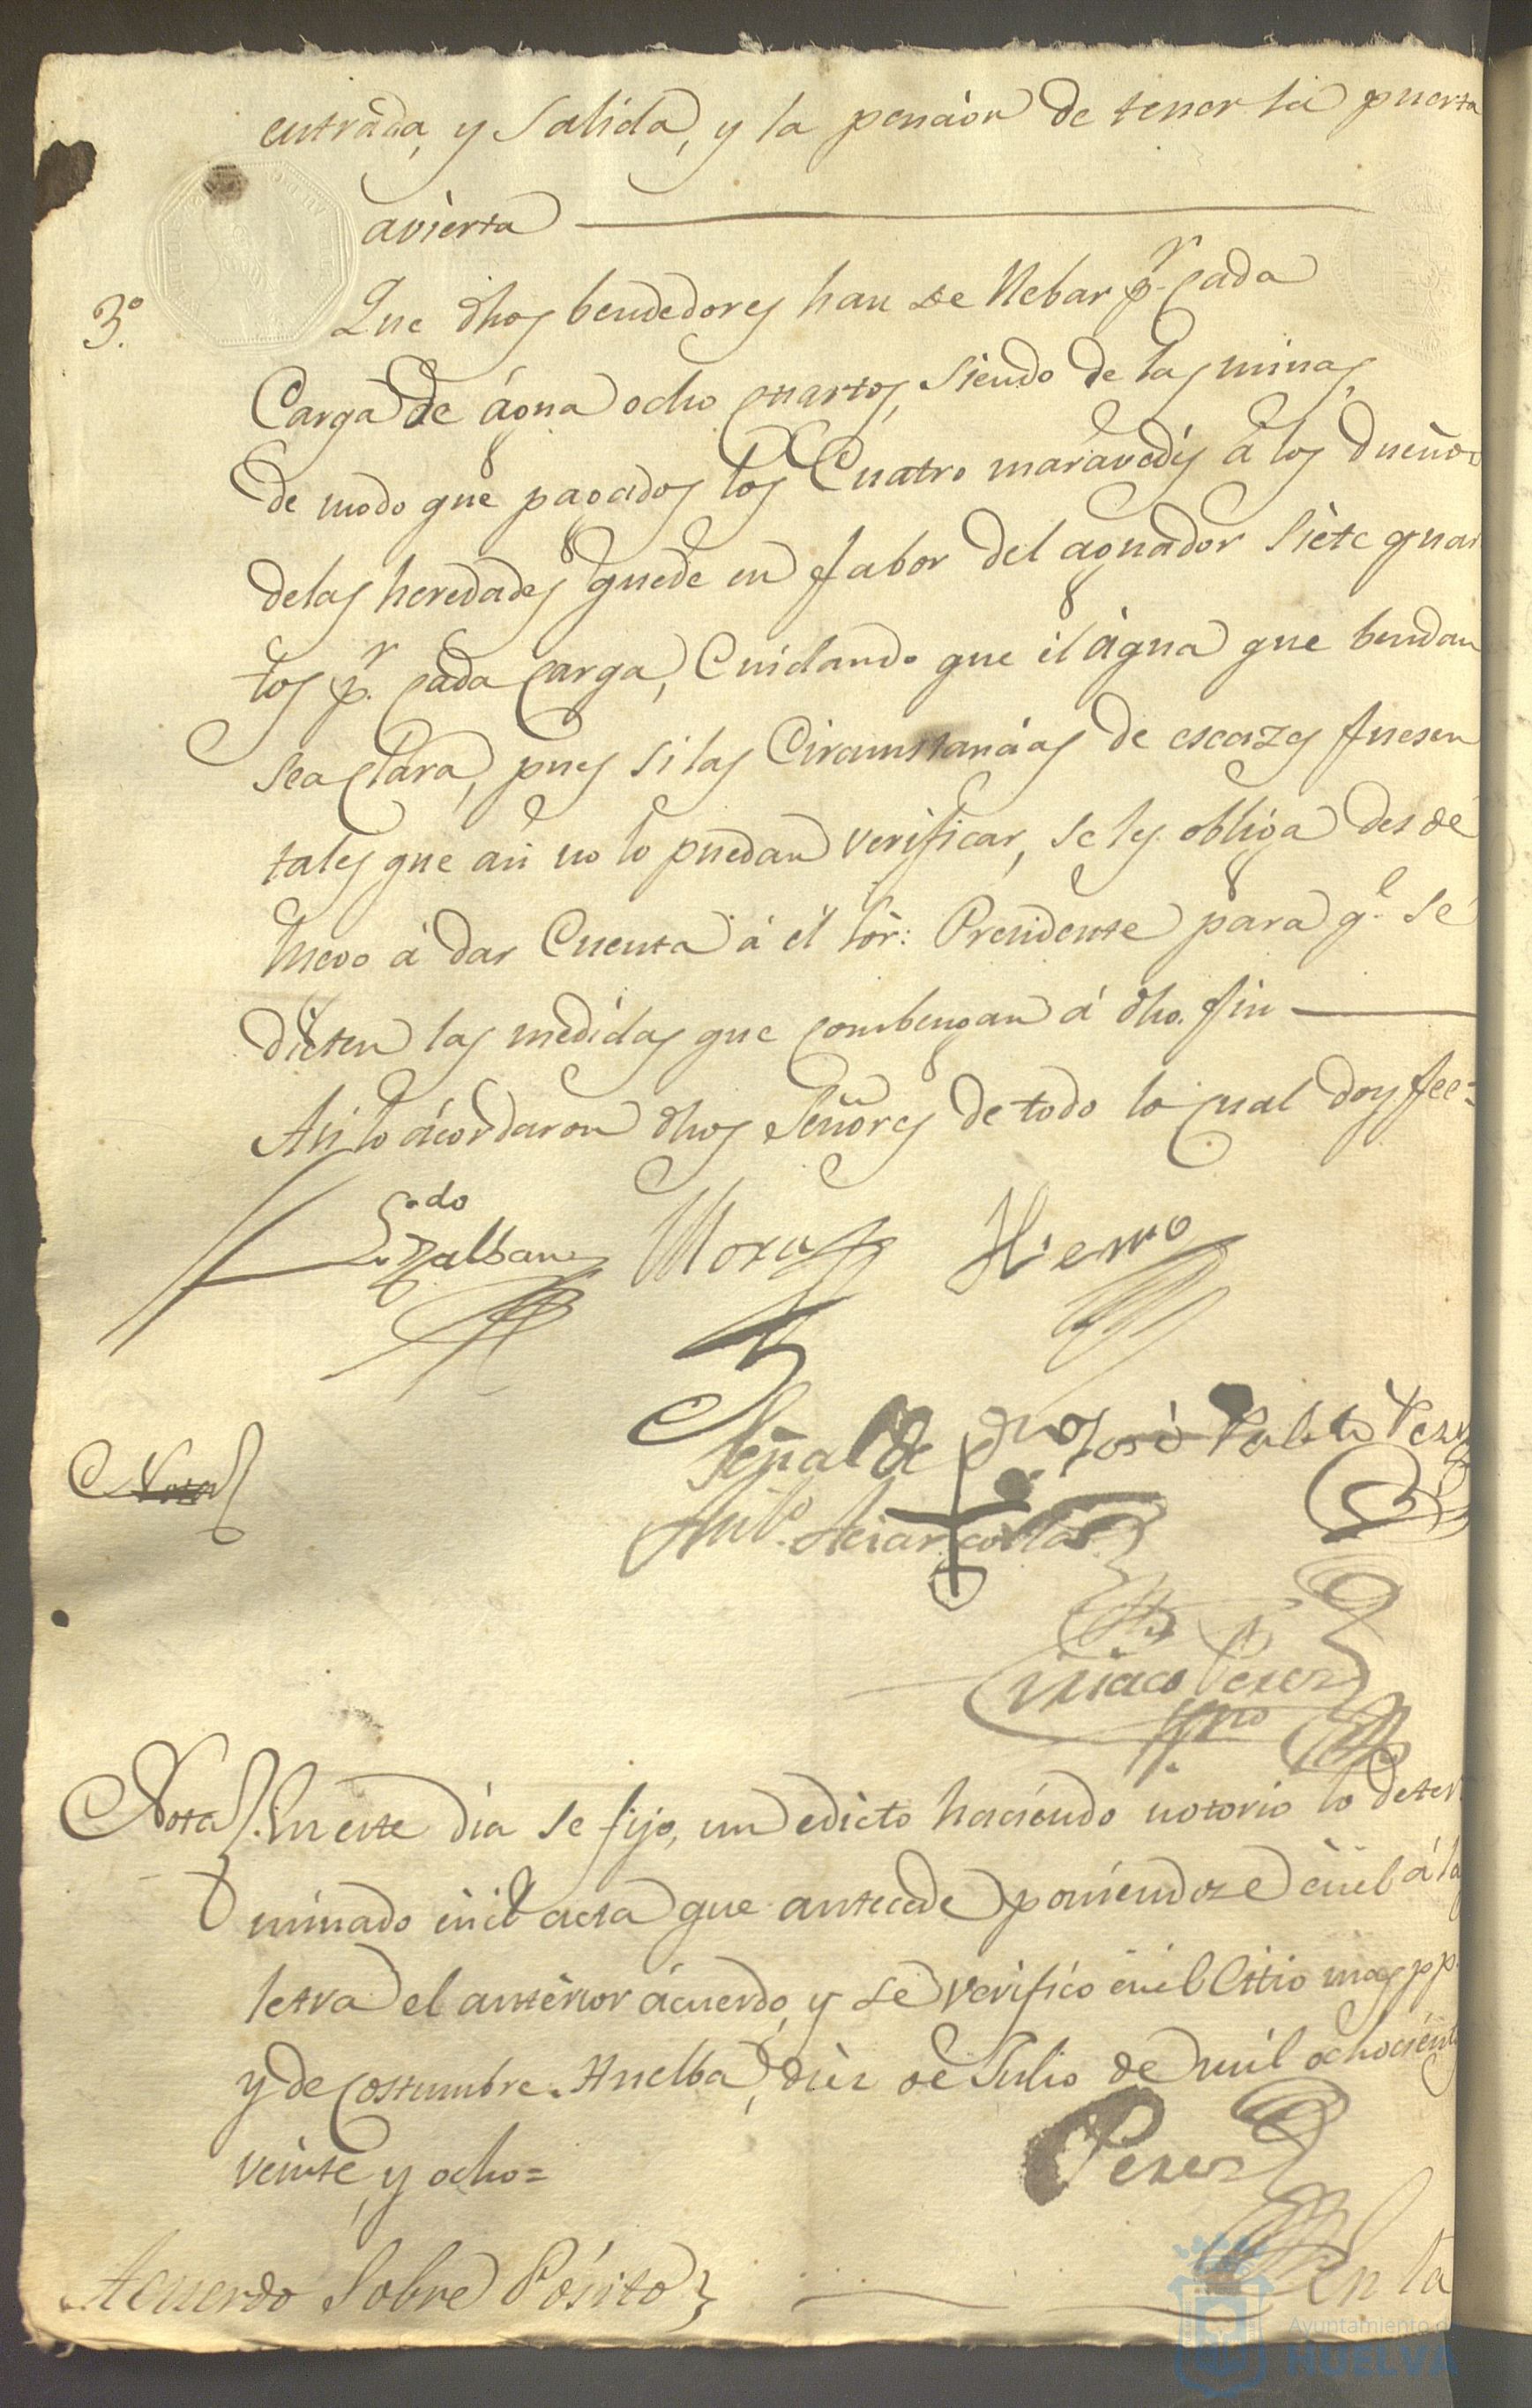 entrada, y salida, y la pencion de tener la puerta
avierta
3.º Que dhos bendedores han de llebar p.r cada
Carga de água ocho quartos, siendo de las minas,
de modo que pagados los Cuatro maravedis á los dueños
de las heredades quede en fabor del aguador siete quar
tos p.r cada carga, Cuidando que el água que bendan
sea clara, pues si las Circunstancias de escazes fuesen
tales que asi no lo puedan verificar, se les obliga desde
luego á dar Cuenta á el Sor: Presidente para q.e se
dicten las medidas que combengan á dho. fin
Asi lo ácordaron dhos Señores de todo lo cual doy fee=
L.do
Zalban Mora Hierro
Señal de Dn José Pablo Perez
Nota
Ant.o
Ciriaco Perez
Nota En este dia se fijo, un edicto haciendo notorio lo deter
minado en el acta que antecede poniendoze en el á la
letra el anterior ácuerdo, y se verifico en el Citio mas pp.
y de costumbre. Huelba, diez de Julio de mil ochocient
veinte, y ocho=
Perez
Acuerdo Sobre Pósito
En la
Ayuntamiento de
HUELVA